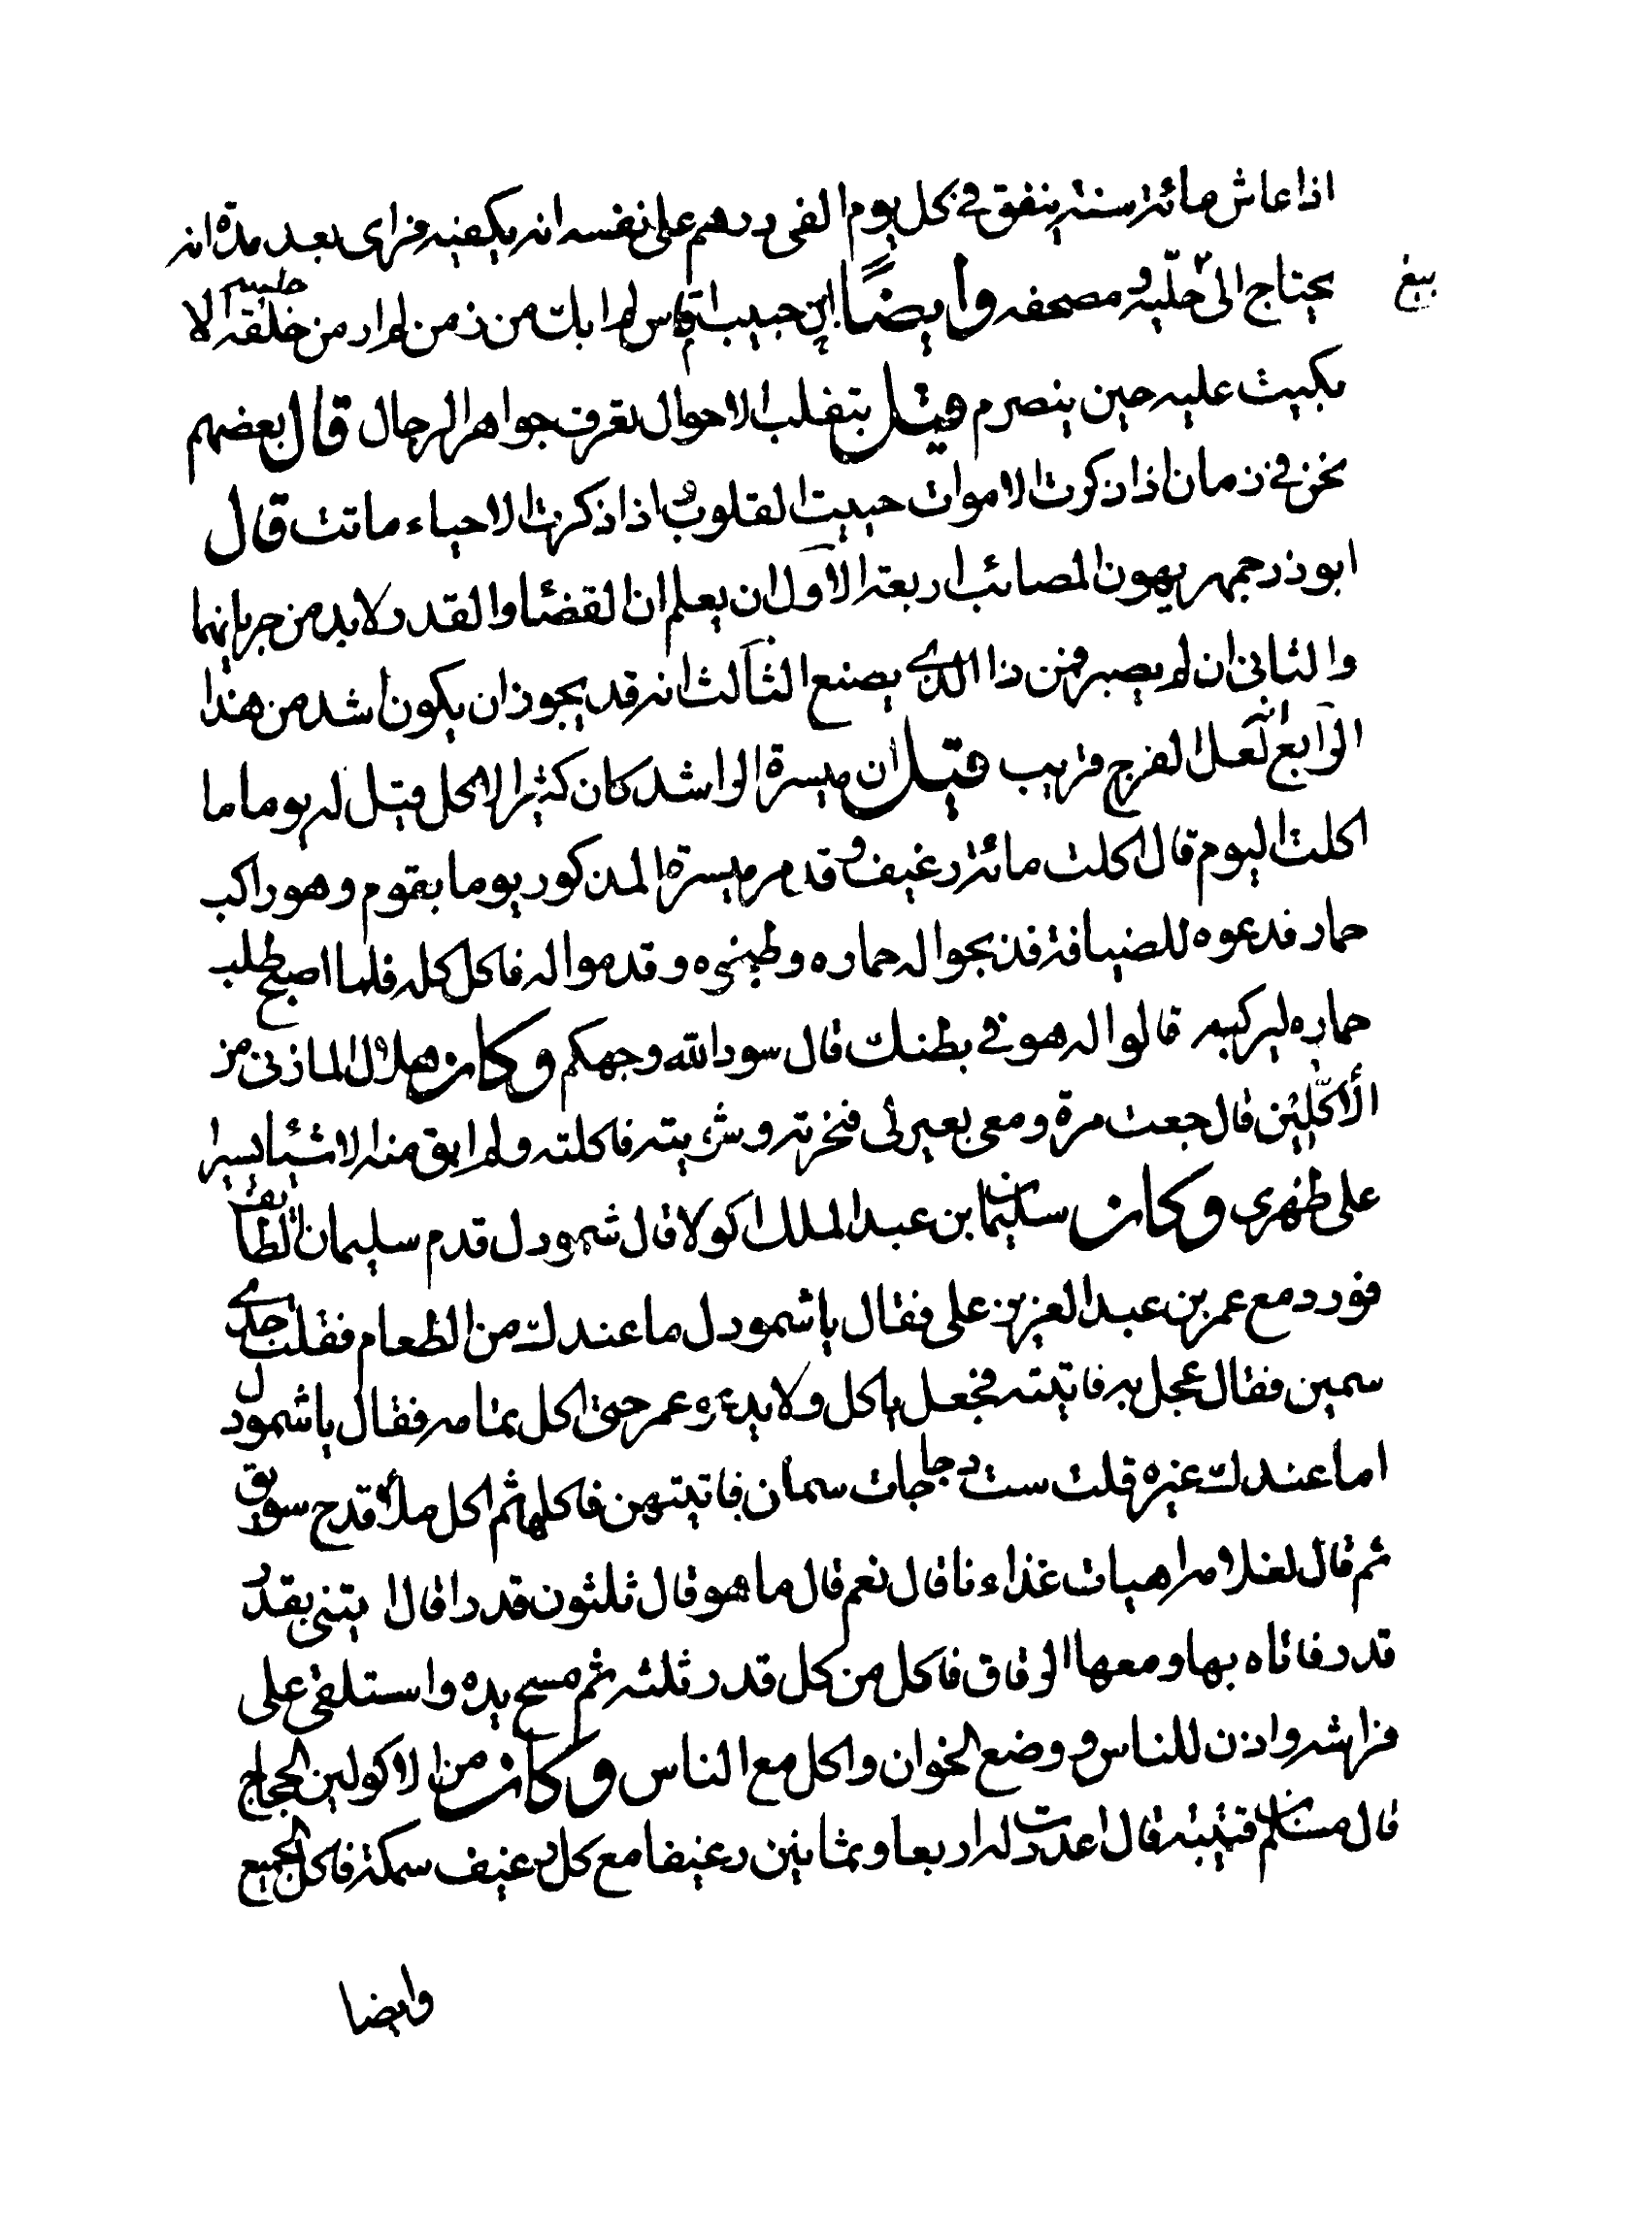 اذا عاش مائة سنة ينفق في كل يوم الفى درهم على نفسه انه يكفيه فراى بعد مدة انه
يحتاج الى حلية مصحفه وايضًا ابن حبيب لم ابك من زمن لم ار من خلقه الا
بكيت عليه حين ينصرم قيل بتقلب الاحوال تعرف جواهر الرجال قال بعضهم
نحن في زمان اذا ذكرت الاموات حييت القلوب و اذا ذكرت الاحياء ماتت قال
ابوذرجمهر يهون المصائب اربعة الآول ان يعلم ان القضا والقدر لابد من جريانهما
والثانى ان لم يصبر فمن ذا الذى يصنع الثالث انه قد يجوز ان يكون اشد من هذا
الرابع انه لعل الفرج قريب قيل ان ميسرة الراشد كان كثير الاكل قيل له يوما ما
اكلت اليوم قال اكلت مائة رغيف و قد مر ميسرة المذكور يوما بقوم وهو راكب
حمار فدعوه للضيافة فذبحوا له حماره وطبخوه وقدموا له فاكل كله فلما اصبح طلب
حماره ليركبه قالوا له هو في بطنك قال سود الله وجهكم وكان هلال المازنى من
الأكّلين قال جعت مرة ومعى بعير لى فنحرته وشويته فاكلته ولم ابق منه الا شيئا يسيرا
على ظهرى وكان سليمان بن عبد الملك اكولا قال شمودل قدم سليمان الطائف
فورد مع عمر بن عبد العزيز على فقال يا شمودل ما عندك من الطعام فقلت جدى
سمين فقال عجل به فاتيته فجعل ياكل ولا يدعوه عمر حتى اكل تمامه فقال يا شمودل
اما عندك غيره قلت ست دجاجات سمان فاتيتهن فاكلها ثم اكل ملأ قدح سويق
ثم قال لغلامه اهيات غذاءنا قال نعم قال ما هو قال ثلثون قدرا قال ايتنى بقدر
قدر فاتاه بها ومعها الرقاق فاكل من كل قدر ثلثه ثم مسح يده واستلقى على
فراشه واذن للناس و وضع الخوان واكل مع الناس وكان من الاكولين الحجاج
قال مسلم بن قتيبة قال اعددت له اربعا وثمانين رغيفا مع كل رغيف سمكة فاكل الجميع
وايضا